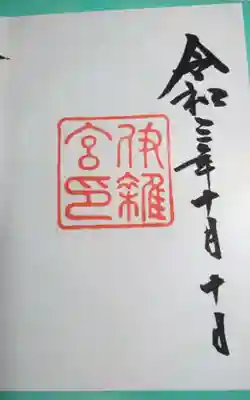 令和三年十月十日
伊雜
宮印